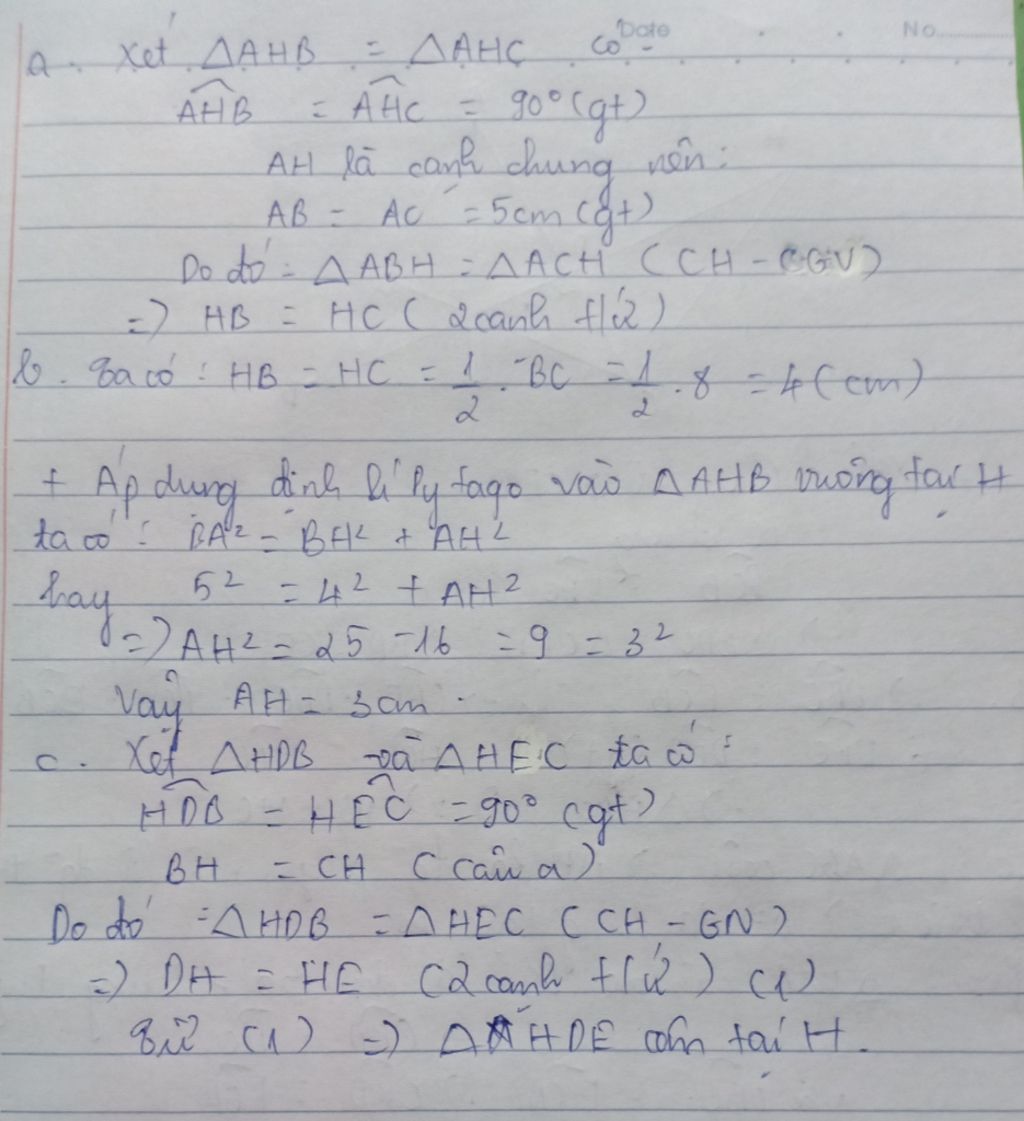 Date No
a. Xét ΔAHB = ΔAHC có
AHB = AHC = 90° (gt)
AH là cạnh chung nên:
AB = AC = 5cm (gt)
Do đó: ΔABH = ΔACH (CH - CGV)
=> HB = HC (2 cạnh t/ứ)
b. Ta có: HB = HC = 1/2 . BC = 1/2 . 8 = 4 (cm)
+ Áp dụng định lí Pytago vào ΔAHB vuông tại H
ta có: BA² = BH² + AH²
hay 5² = 4² + AH²
=> AH² = 25 - 16 = 9 = 3²
Vậy AH = 3cm.
c. Xét ΔHDB và ΔHEC ta có:
HDB = HEC = 90° (gt)
BH = CH (câu a)
Do đó: ΔHDB = ΔHEC (CH - GN)
=> DH = HE (2 cạnh t/ứ) (1)
Từ (1) => ΔHDE cân tại H.